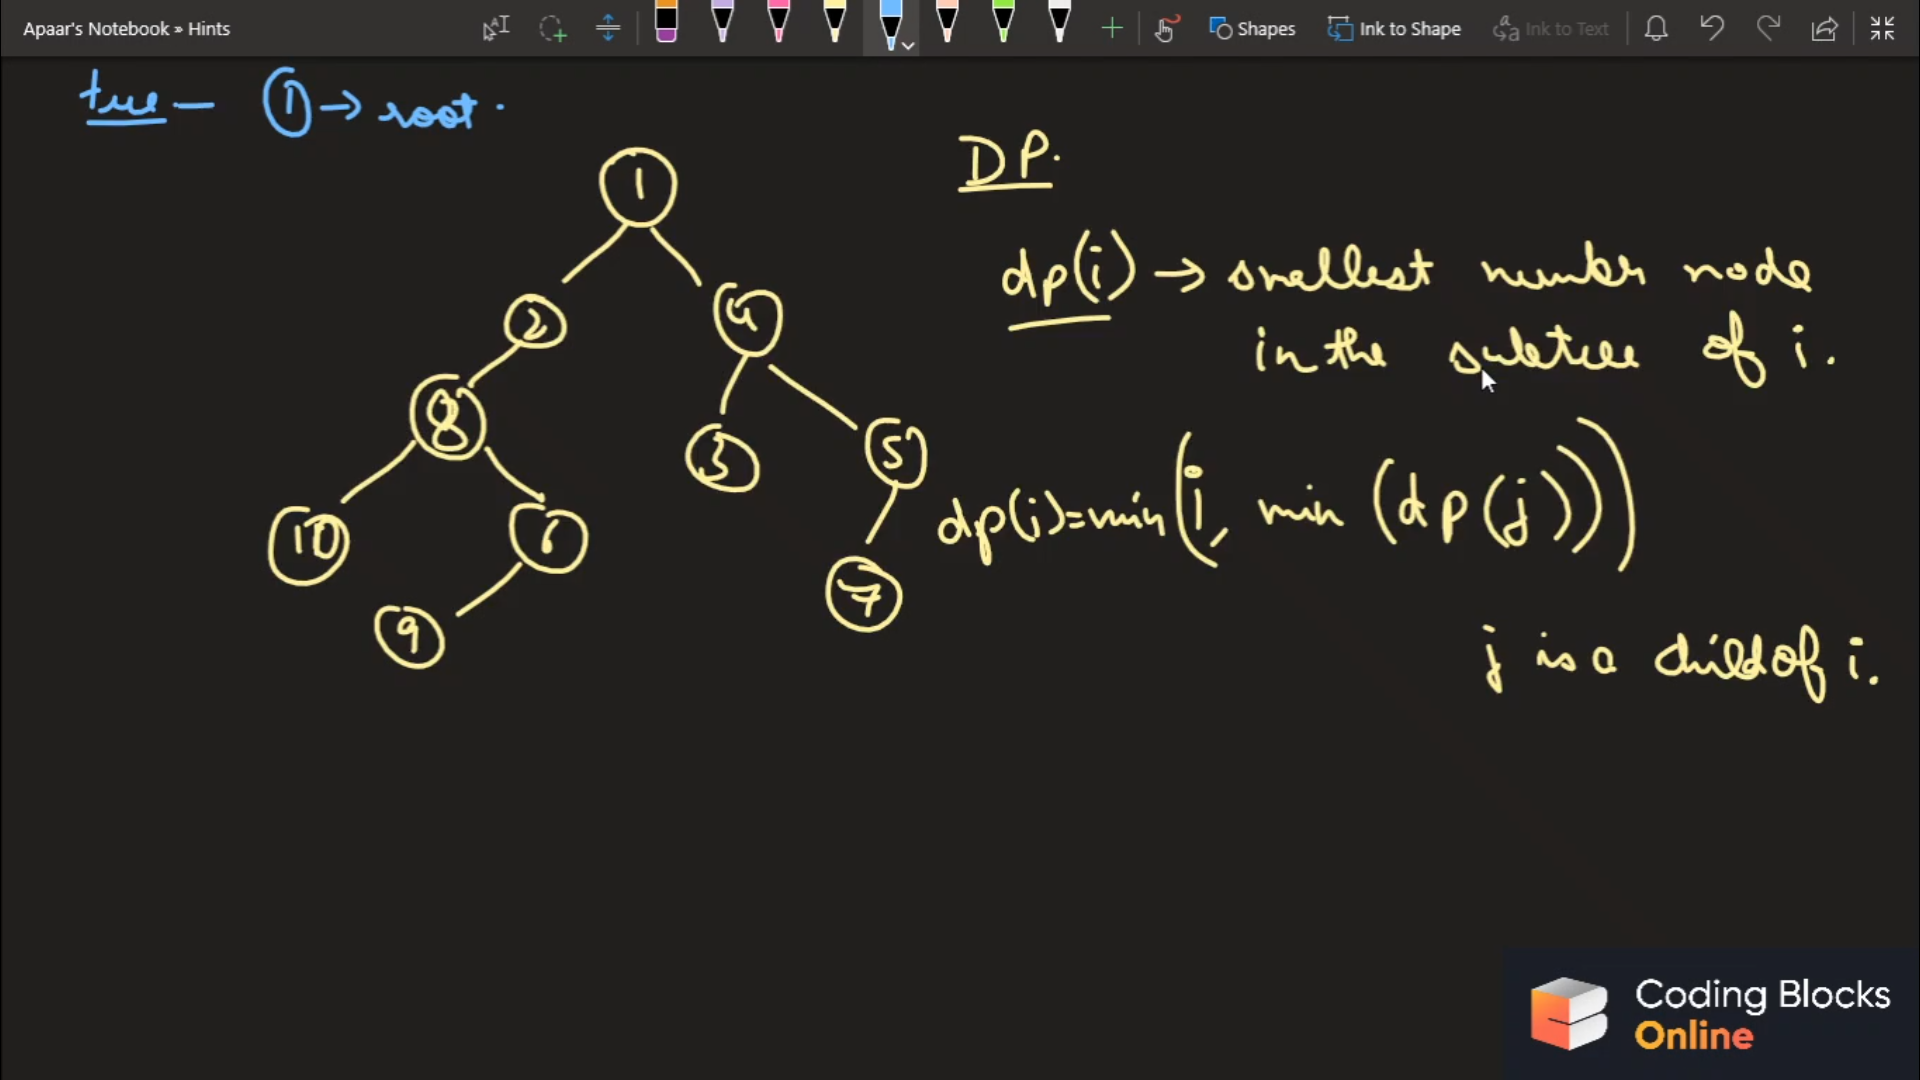 Apaar's Notebook » Hints
Shapes
Ink to Shape
Ink to Text
tree — ① → root.
1
DP.
dp(i) → smallest number node
in the subtree of i.
2
4
8
3
5
10
6
dp(i)=min(i, min (dp(j)))
7
9
j is a child of i.
Coding Blocks
Online